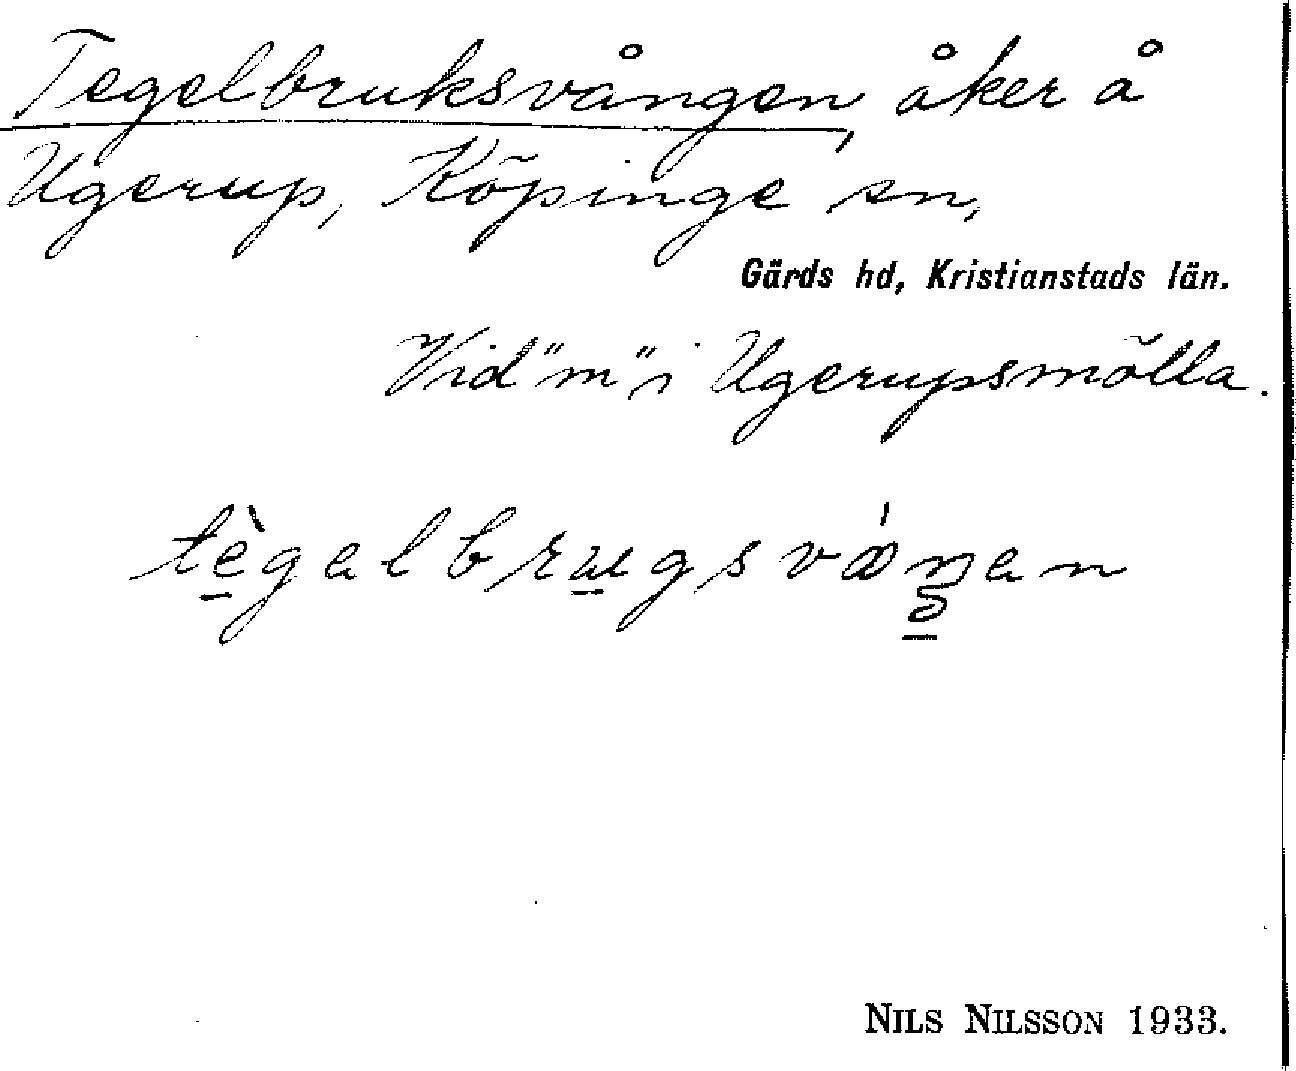 Tegelbruksvången, åker å
Ugerup, Köpinge sn,
Gärds hd, Kristianstads län.
Vid "m" i Ugerupsmölla.
tègəlbrugsvåŋən
NILS NILSSON 1933.